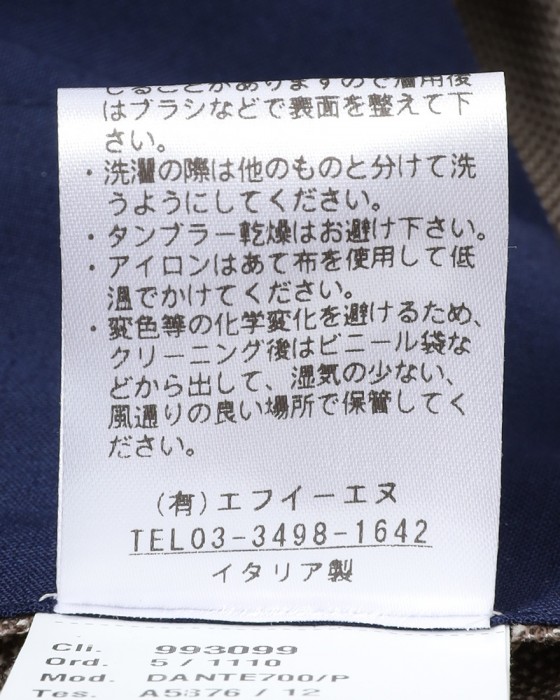 じることがありますので着用後
はブラシなどで表面を整えて下
さい。
・洗濯の際は他のものと分けて洗
うようにしてください。
・タンブラー乾燥はお避け下さい。
・アイロンはあて布を使用して低
温でかけてください。
・変色等の化学変化を避けるため、
クリーニング後はビニール袋な
どから出して、湿気の少ない、
風通りの良い場所で保管してく
ださい。
(有)エフイーエヌ
TEL03-3498-1642
イタリア製
Cli. 993099
Ord. 5 / 1110
Mod. DANTE700/P
Tes. A5376 / 12